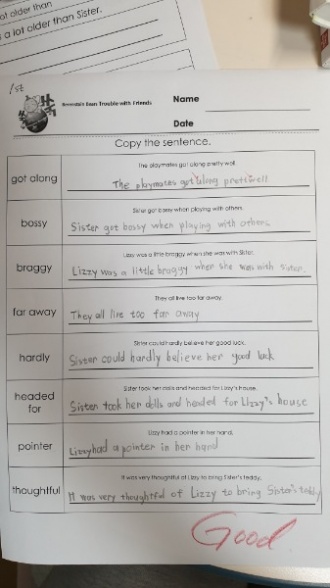 ot older than
s a lot older than Sister.
1st
Berenstain Bears Trouble with Friends
Name
Date
Copy the sentence.
got along
The playmates got along pretty well.
The playmates got along prettiwell
bossy
Sister got bossy when playing with others.
Sister got bossy when playing with others
braggy
Lizzy was a little braggy when she was with Sister.
Lizzy was a little braggy when she was with sister.
far away
They all live too far away.
They all live too far away
hardly
Sister could hardly believe her good luck.
Sister could hardly believe her good luck
headed for
Sister took her dolls and headed for Lizzy's house.
Sister took her dolls and headed for Lizzy's house
pointer
Lizzy had a pointer in her hand.
Lizzy had a pointer in her hand
thoughtful
It was very thoughtful of Lizzy to bring Sister's teddy.
It was very thoughtful of Lizzy to bring Sister's teddy
Good